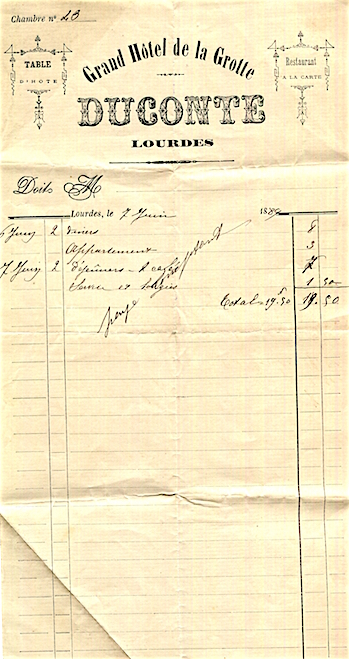 Chambre n° 23
Grand Hôtel de la Grotte
TABLE D'HÔTE
Restaurant A LA CARTE
DUCONTE
LOURDES
Doit M
Lourdes, le 7 Juin 18
6 Juin 2 Diners 8
Appartement 3
7 Juin 2 Déjeuners 7
et Bougies 1 50
Total = 19.50 19.50